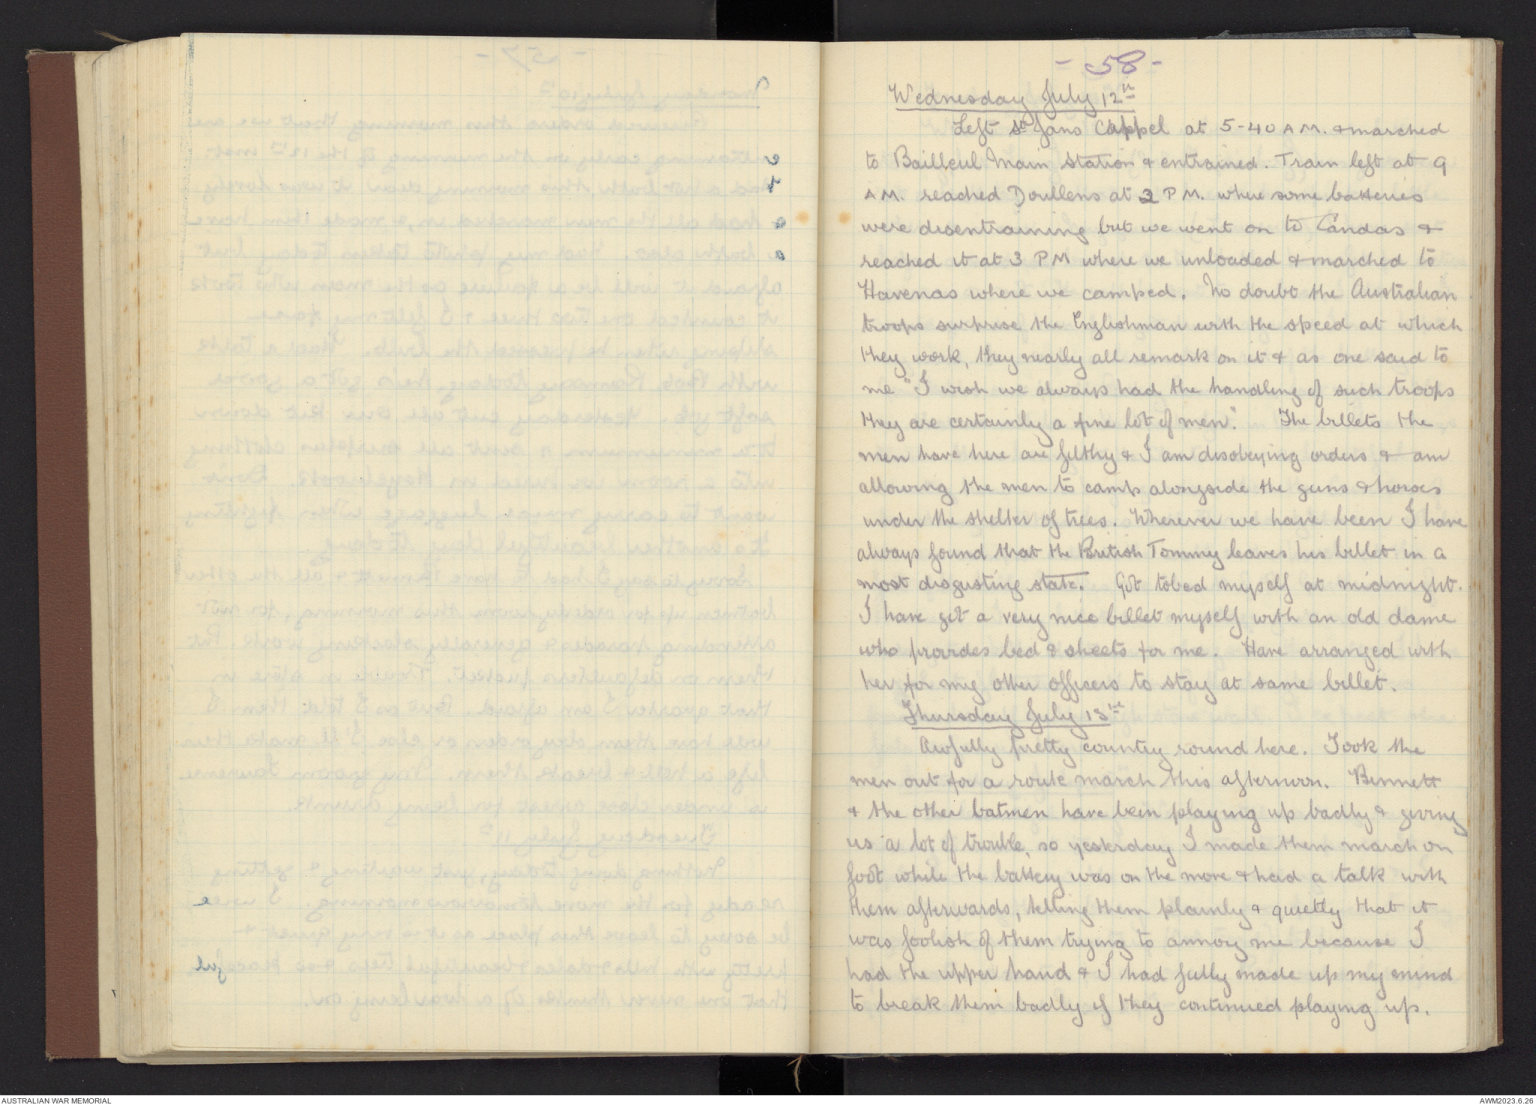 - 58 -
Wednesday July 12th
Left St Jans Cappel at 5-40 A.M. & marched
to Bailleul Main Station & entrained. Train left at 9
A.M. reached Doullens at 2 P.M. where some batteries
were disentraining but we went on to Candas &
reached it at 3 PM where we unloaded & marched to
Havenas where we camped. No doubt the Australian
troops surprise the Englishman with the speed at which
they work, they nearly all remark on it & as one said to
me "I wish we always had the handling of such troops
they are certainly a fine lot of men". The billets the
men have here are filthy & I am disobeying orders & am
allowing the men to camp alongside the guns & horses
under the shelter of trees. Wherever we have been I have
always found that the British Tommy leaves his billet in a
most disgusting state. Got to bed myself at midnight.
I have got a very nice billet myself with an old dame
who provides bed & sheets for me. Have arranged with
her for my other officers to stay at same billet.
Thursday July 13th
Awfully pretty country round here. Took the
men out for a route march this afternoon. Bennett
& the other batmen have been playing up badly & giving
us a lot of trouble, so yesterday I made them march on
foot while the battery was on the move & had a talk with
them afterwards, telling them plainly & quietly that it
was foolish of them trying to annoy me because I
had the upper hand & I had fully made up my mind
to break them badly if they continued playing up.
AUSTRALIAN WAR MEMORIAL
AWM2023.6.26